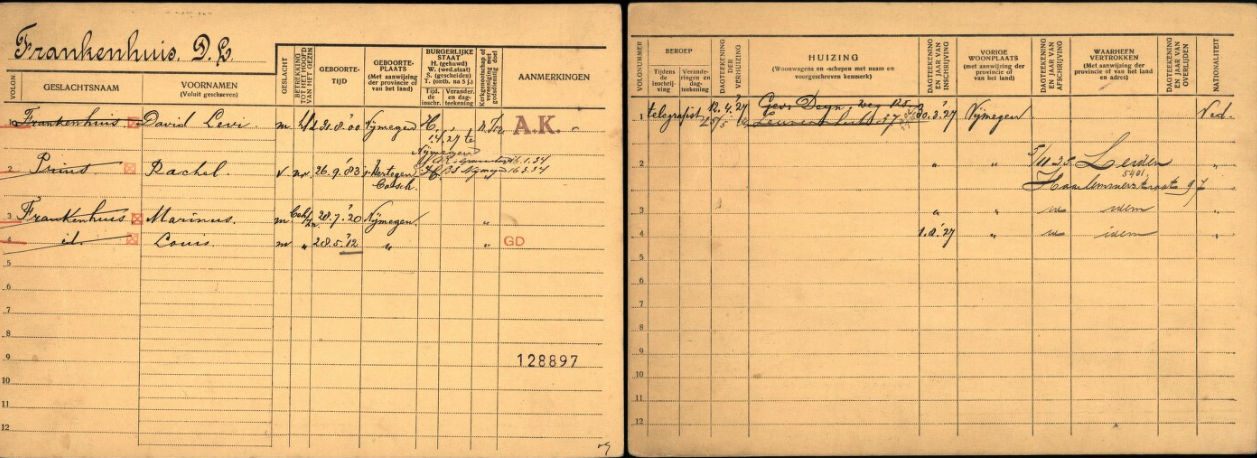 Frankenhuis, D. L.
VOLGN.
GESLACHTSNAAM
VOORNAMEN
(Voluit geschreven)
GESLACHT
BETREKKING TOT HET HOOFD VAN HET GEZIN
GEBOORTE-
TIJD
GEBOORTE-
PLAATS
(Met aanwijzing der provincie of van het land)
BURGERLIJKE STAAT
H. (gehuwd)
W. (wed.staat)
S. (gescheiden)
T. (ontb. na 5 j.)
Tijd. de inschr.
Verander. en dag-teekening
Kerkgenootschap of vereeniging met godsdienstig doel
AANMERKINGEN
1 Frankenhuis David Levi m 31.8.'00 Nijmegen H. A.K.
Nijmegen
2 Prins Rachel v 26.9.'83
3 Frankenhuis Marinus. m 28.7.'20 Nijmegen "
4 id. Louis. m " 28.5.'12 " " GD
5
6
7
8
9
128897
10
11
12
VOLGNUMMER
BEROEP
Tijdens de inschrijving
Verande-ringen en dag-teekening
DAGTEEKENING DER VERHUIZING
HUIZING
(Woonwagens en -schepen met naam en voorgeschreven kenmerk)
DAGTEEKENING EN JAAR VAN INSCHRIJVING
VORIGE WOONPLAATS
(met aanwijzing der provincie of van het land)
DAGTEEKENING EN JAAR VAN AFSCHRIJVING
WAARHEEN VERTROKKEN
(Met aanwijzing der provincie of van het land en adres)
DAGTEEKENING EN JAAR VAN OVERLIJDEN
NATIONALITEIT
1 telegrafist 12.4.'27 Nijmegen Ned.
2 " " 5/11 35 Leiden "
Haarlemmerstraat 97
3 " " idem "
4 1.8.'27 " idem "
5
6
7
8
9
10
11
12